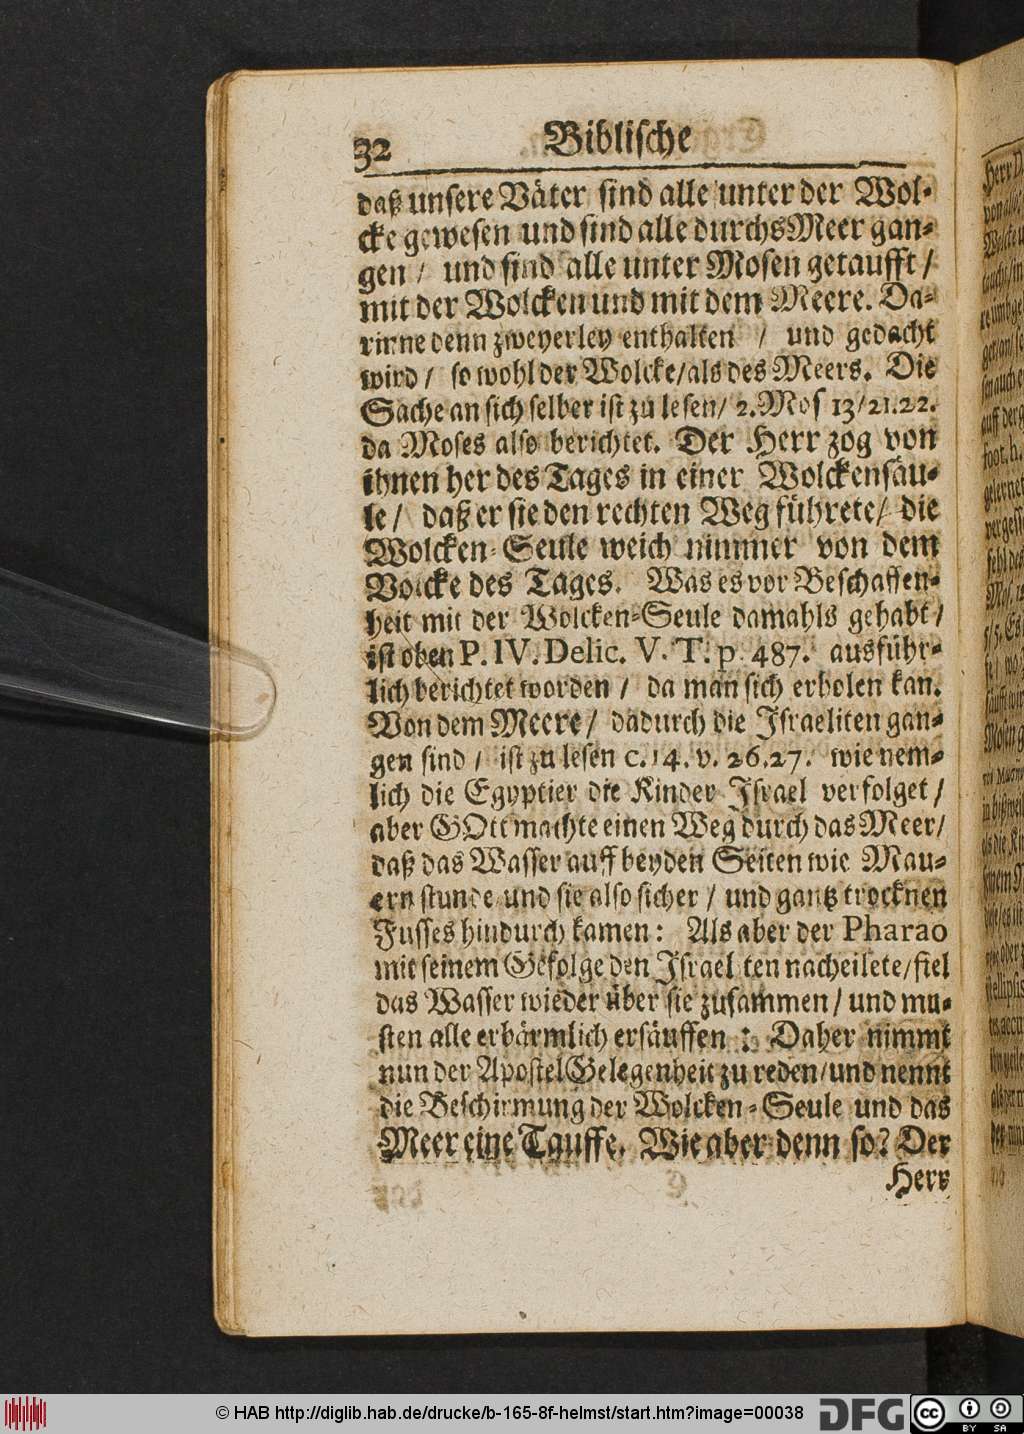 32 Biblische
daß unsere Väter sind alle unter der Wol-
cke gewesen und sind alle durchs Meer gan-
gen / und sind alle unter Mosen getaufft /
mit der Wolcken und mit dem Meere. Da-
rinne denn zweyerley enthalten / und gedacht
wird / so wohl der Wolcke / als des Meers. Die
Sache an sich selber ist zu lesen / 2. Mos 13 / 21. 22.
da Moses also berichtet. Der Herr zog von
ihnen her des Tages in einer Wolckensäu-
le / daß er sie den rechten Weg führete / die
Wolcken-Seule weich nimmer von dem
Volcke des Tages. Was es vor Beschaffen-
heit mit der Wolcken-Seule damahls gehabt /
ist oben P. IV. Delic. V. T. p. 487. ausführ-
lich berichtet worden / da man sich erholen kan.
Von dem Meere / dadurch die Israeliten gan-
gen sind / ist zu lesen c. 14. v. 26. 27. wie nem-
lich die Egyptier die Kinder Israel verfolget /
aber GOtt machte einen Weg durch das Meer /
daß das Wasser auff beyden Seiten wie Mau-
ern stunde und sie also sicher / und gantz trocknen
Fusses hindurch kamen: Als aber der Pharao
mit seinem Gefolge den Israel ten nacheilete / fiel
das Wasser wieder über sie zusammen / und mu-
sten alle erbärmlich ersäuffen : Daher nimmt
nun der Apostel Gelegenheit zu reden / und nennt
die Beschirmung der Wolcken-Seule und das
Meer eine Tauffe. Wie aber denn so? Der
Herr
© HAB http://diglib.hab.de/drucke/b-165-8f-helmst/start.htm?image=00038
DFG
cc BY SA